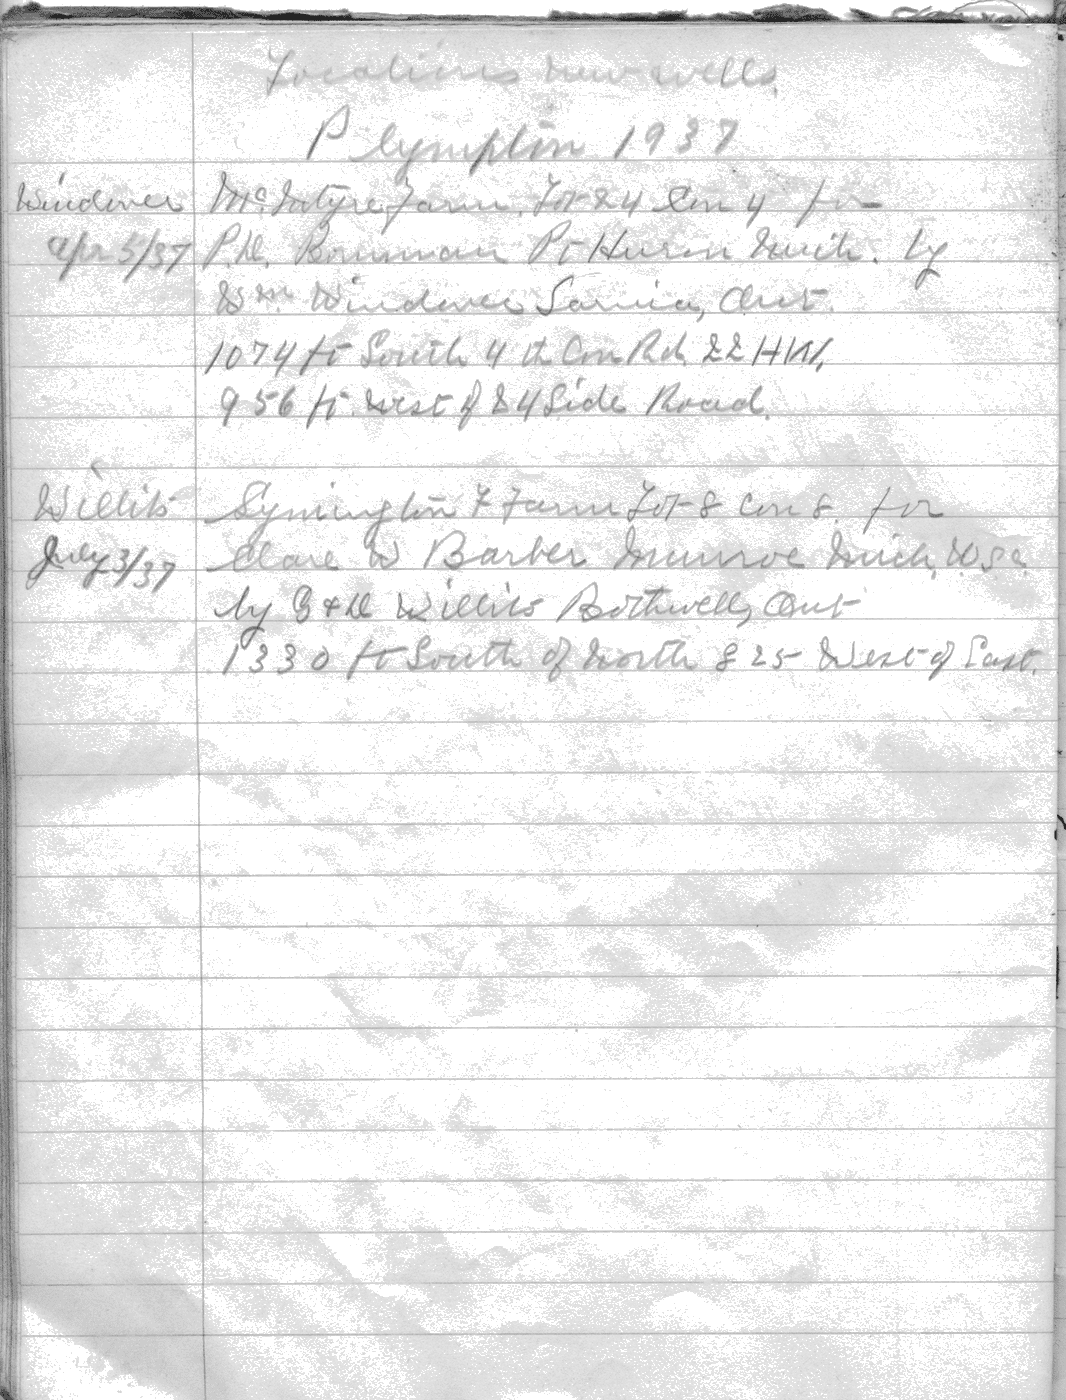 Locations new wells.
Plympton 1937
Windover McIntyre Farm. Lot 24 Con 4 for
Apr 5/37 P.H. Bowman Pt Huron Mich. by
Wm. Windover Sarnia, Ont.
1074 ft South 4th Con Rd, 22 HWY.
956 ft. West of 24 Side Road.
Willits Symington F Farm Lot 8 Con 8. for
July 3/37 Clare W Barber Munroe Mich, U.S.A.
by & H Willits Bothwell, Ont
1330 ft South of North 825 West of East.